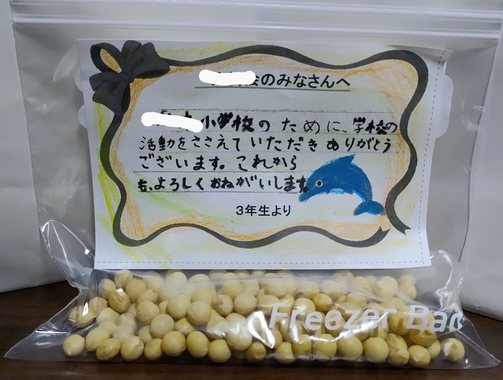 会のみなさんへ
小学校のために、学校の
活動をささえていただきありがとう
ございます。これから
も、よろしくおねがいします
3年生より
Freezer Bag